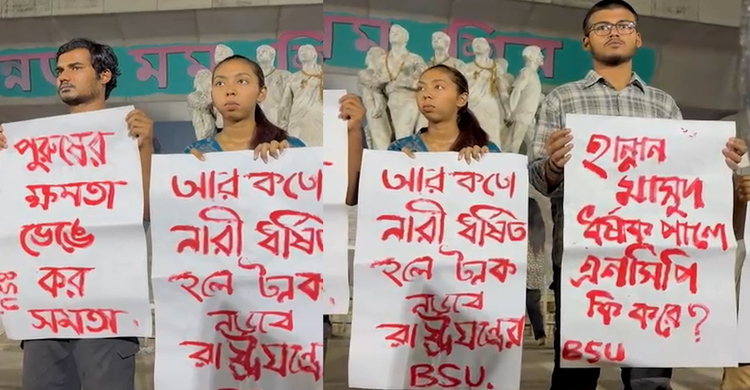 পুরুষের
ক্ষমতা
ভেঙে
কর
সমতা
BSU
আর কতো
নারী ধর্ষিত
হলে টনক
নড়বে
রাষ্ট্রযন্ত্রের
আর কতো
নারী ধর্ষিত
হলে টনক
নড়বে
রাষ্ট্রযন্ত্রের
BSU.
হান্নান
মাসুদ
ধর্ষক পালে
এনসিপি
কি করে?
BSU